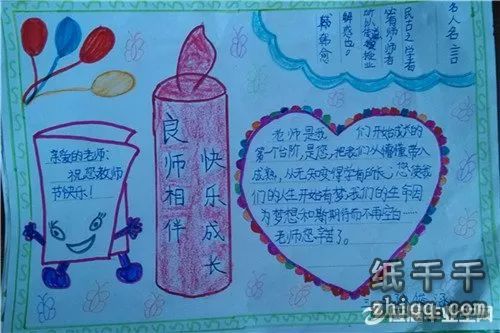 名人名言
古之学者
必有师师者
所以传道授业
解惑也。
韩愈
亲爱的老师:
祝您教师
节快乐!
良师相伴
快乐成长
老师是我们开始成功的
第一个台阶,是您,把我们从懵懂带入
成熟,从无知变得学有所长;您使我
们的人生开始有梦,我们的生命因
为梦想和期待而不再空白……
老师您辛苦了。
纸千千
zhiqq.com